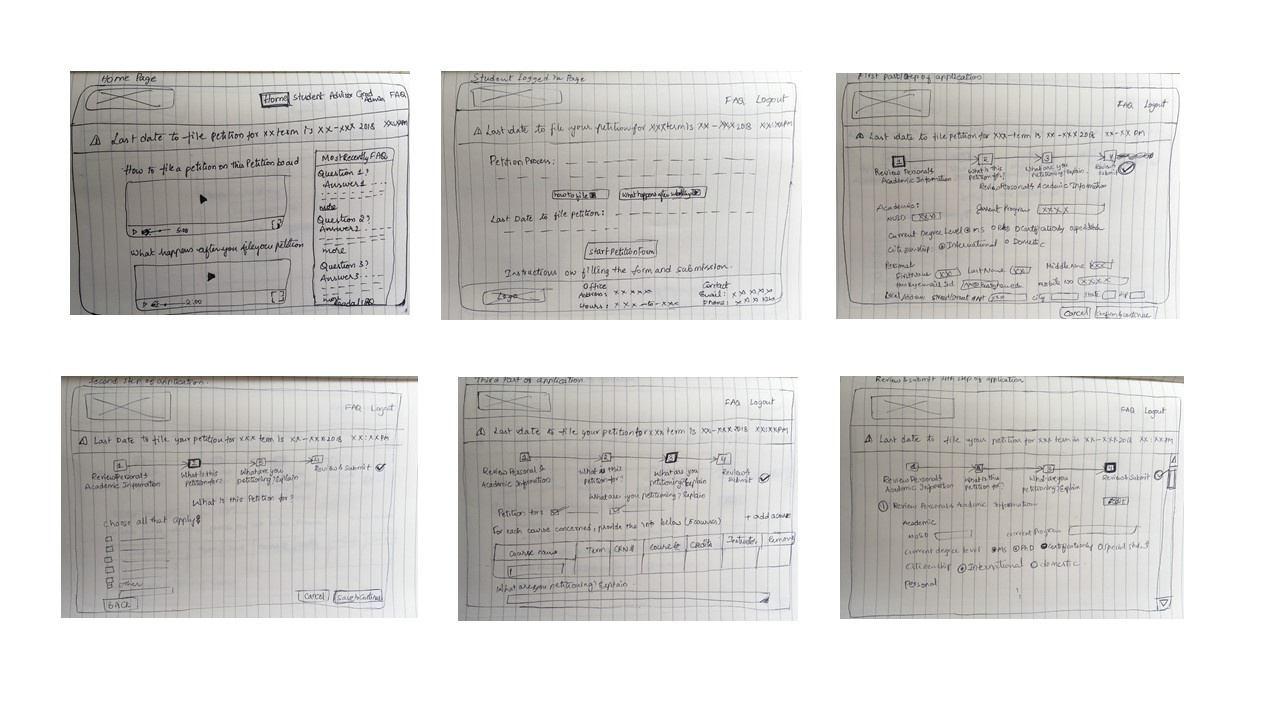 Home Page
Home Student Advisor Grad Admin FAQ
Last date to file petition for xx term is XX-XXX 2018 XX:XXPM
How to file a petition on this Petition board
5:00
What happens after you file your petition
2:00
Most Recently FAQ
Question 1?
Answer 1
more
Question 2?
Answer 2
more
Question 3?
Answer 3
Student Logged In Page
FAQ Logout
Last date to file your petition for XXX term is XX-XXX 2018 XX:XXPM
Petition Process:
how to file
Last Date to file petition:
Start Petition Form
Instructions on filling the form and submission.
Logo
Office
Address: XXXXX
Hours: XXX-to-XXX
Contact
Email: XXXXX
Phone: XXXXX
First part/step of application
FAQ Logout
Last date to file petition for XXX-term is XX-XXX 2018 XX-XX PM
1 2 3 4
Review Personal & Academic Information
What is this Petition for?
What are you Petitioning? Explain
Review & Submit
Review Personal & Academic Information
Academic:
NUID XXX
Current Program XXXX
Current Degree Level MS PhD
Citizenship: International Domestic
Personal
First Name XX Last Name XX Middle Name XXX
Mobile No XXXX
City State Zip
Cancel Confirm & Continue
Second Step of application
FAQ Logout
Last Date to file your petition for XXX term is XX-XXX 2018 XX:XXPM
1 2 3 4
Review Personal & Academic Information
What is this Petition for?
What are you petitioning? Explain
Review & Submit
What is this Petition for?
Choose all that apply:
Other
BACK
Cancel Save & Continue
Third Part of application
FAQ Logout
Last date to file your petition for XXX term is XX-XXX 2018 XX:XXPM
1 2 3 4
Review Personal & Academic Information
What is this petition for?
What are you petitioning? Explain
Review & Submit
What are you petitioning? Explain
Petition for:
For each course concerned, provide the info below (5 courses)
+ add a course
Course name Term CRN# Course# Credits Instructor
What are you petitioning? Explain
Review & submit step of application
FAQ Logout
Last date to file your petition for XXX term is XX-XXX 2018 XX:XXPM
Review Personal & Academic Information
What is this petition for?
What are you petitioning? Explain
Review & Submit
1 Review Personal & Academic Information
Edit
Academic
NUID
Current Program
Current degree level MS PhD
Citizenship International domestic
Personal